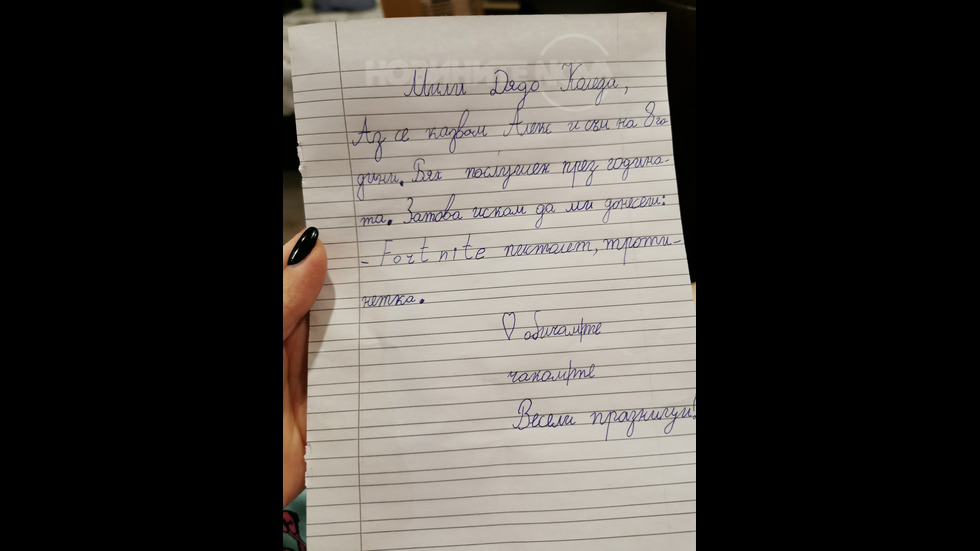 Мили Дядо Коледа,
Аз се казвам Алекс и съм на 8 го
дини. Бях послушен през година-
та. Затова искам да ми донесеш:
- Fortnite пистолет, троти-
нетка.
♡ обичам/те
чакам/те
Весели празници!